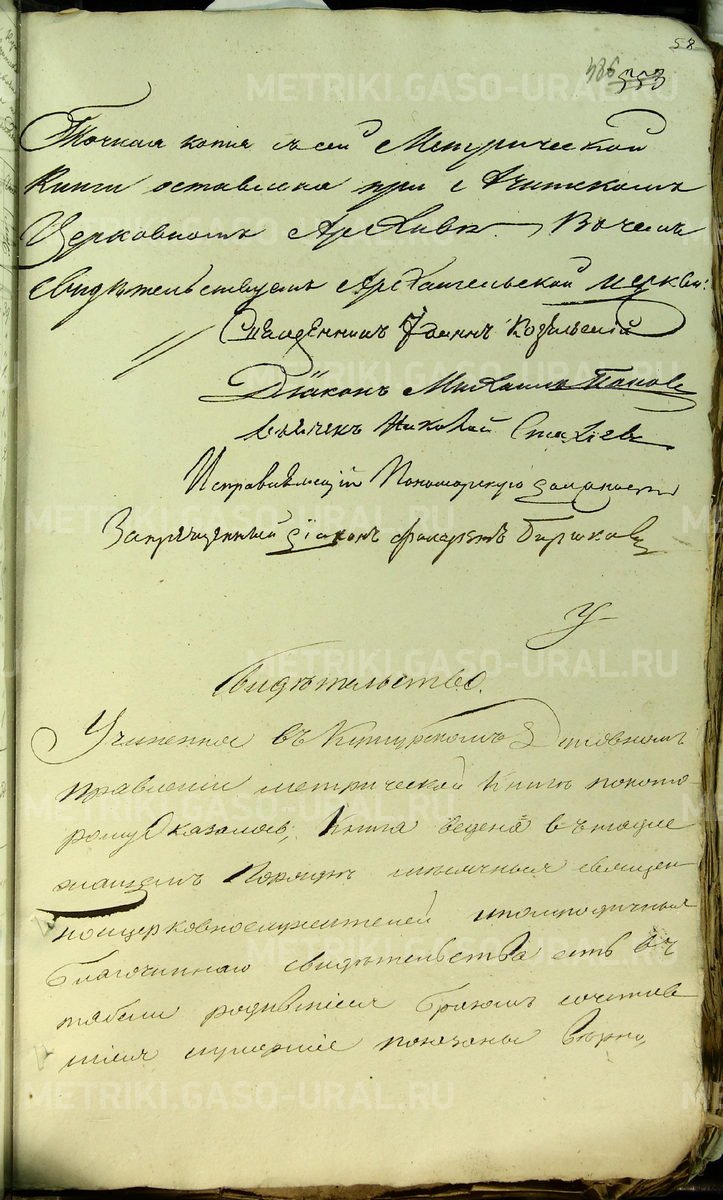 58
486 553
Точная копія съ сей Метрической
Книги оставлена при Ачитскомъ
Церковномъ Архивѣ. Въ чемъ
свидѣтельствуемъ Архангельской церкви:
Священникъ Іоаннъ Козельскій
Діаконъ Михаилъ Поповъ
Николай
Исправляющій Пономарскую должность
Запрещенный діаконъ Филаретъ Бирюковъ
Свидѣтельство.
Учиненное въ Кунгурскомъ Духовномъ
Правленіи метрической Книгѣ покото-
рому Оказалось, Книга ведена въ надле-
жащемъ Порядкѣ мѣсячныя священ-
ноцерковнослужителей ипотретичныя
благочиннаго свидѣтельства есть въ
табели родившіеся бракомъ сочетав-
шіеся иумершіе показаны вѣрно,
METRIKI.GASO-URAL.RU